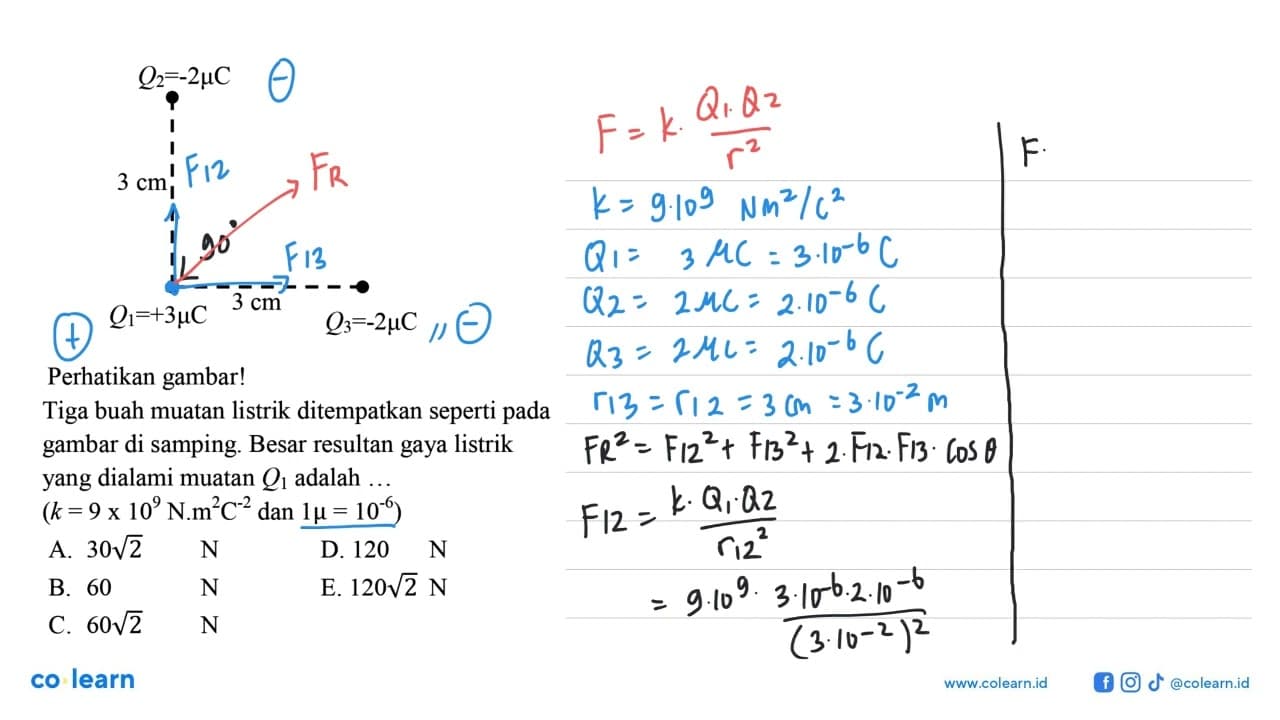 Q2=-2μC ⊖
3 cm F12 FR
90°
F13
3 cm
Q1=+3μC
⊕
Q3=-2μC " ⊖
Perhatikan gambar!
Tiga buah muatan listrik ditempatkan seperti pada
gambar di samping. Besar resultan gaya listrik
yang dialami muatan Q1 adalah …
(k = 9 x 10⁹ N.m²C⁻² dan 1μ = 10⁻⁶)
A. 30√2 N D. 120 N
B. 60 N E. 120√2 N
C. 60√2 N
F = k. Q1.Q2 / r²
k = 9.10⁹ Nm²/C²
Q1 = 3 μC = 3.10⁻⁶ C
Q2 = 2μC = 2.10⁻⁶ C
Q3 = 2μC = 2.10⁻⁶ C
r13 = r12 = 3 cm = 3.10⁻² m
FR² = F12² + F13² + 2.F12.F13. cos θ
F12 = k. Q1.Q2 / r12²
= 9.10⁹. 3.10⁻⁶.2.10⁻⁶ / (3.10⁻²)²
F.
co learn
www.colearn.id
@colearn.id